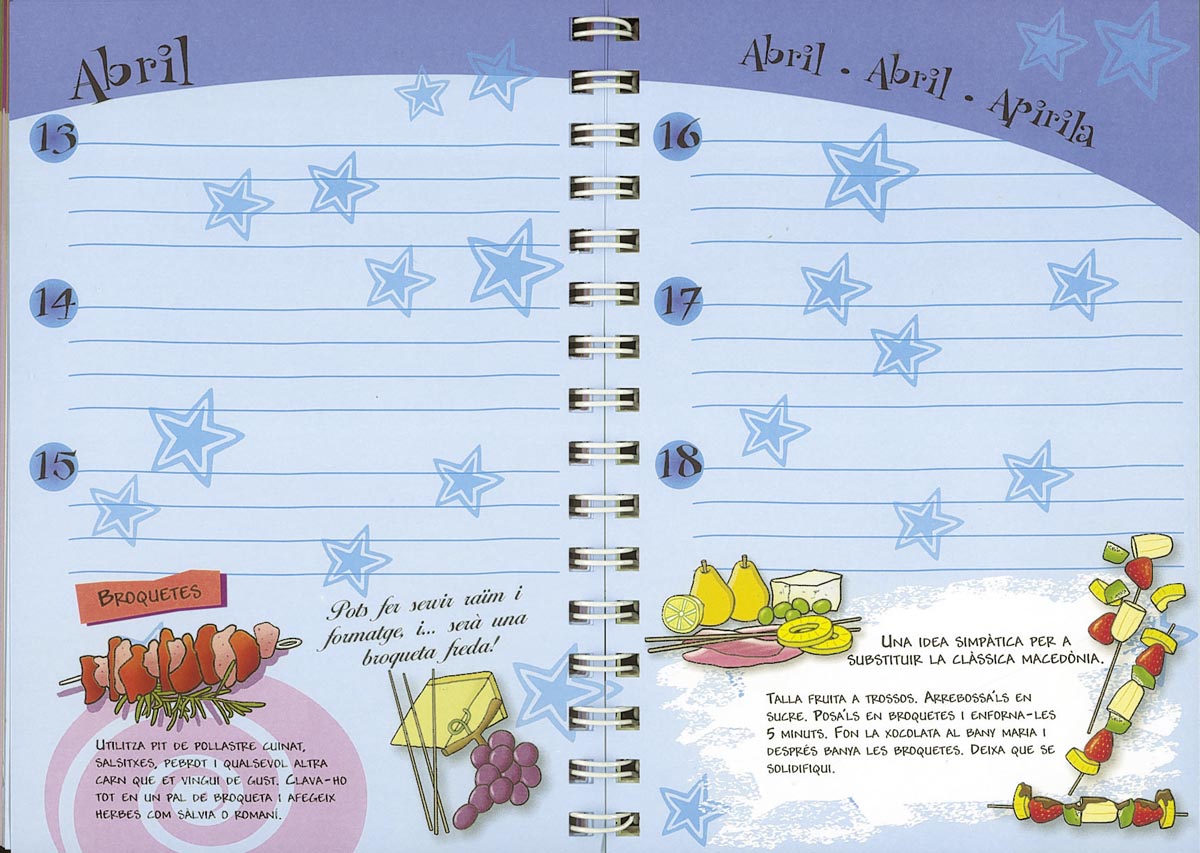 Abril
13
14
15
BROQUETES
Pots fer servir raïm i
formatge, i... serà una
broqueta freda!
UTILITZA PIT DE POLLASTRE CUINAT,
SALSITXES, PEBROT I QUALSEVOL ALTRA
CARN QUE ET VINGUI DE GUST. CLAVA-HO
TOT EN UN PAL DE BROQUETA I AFEGEIX
HERBES COM SÀLVIA O ROMANÍ.
Abril . Abril . Apirila
16
17
18
UNA IDEA SIMPÀTICA PER A
SUBSTITUIR LA CLÀSSICA MACEDÒNIA.
TALLA FRUITA A TROSSOS. ARREBOSSA'LS EN
SUCRE. POSA'LS EN BROQUETES I ENFORNA-LES
5 MINUTS. FON LA XOCOLATA AL BANY MARIA I
DESPRÉS BANYA LES BROQUETES. DEIXA QUE SE
SOLIDIFIQUI.